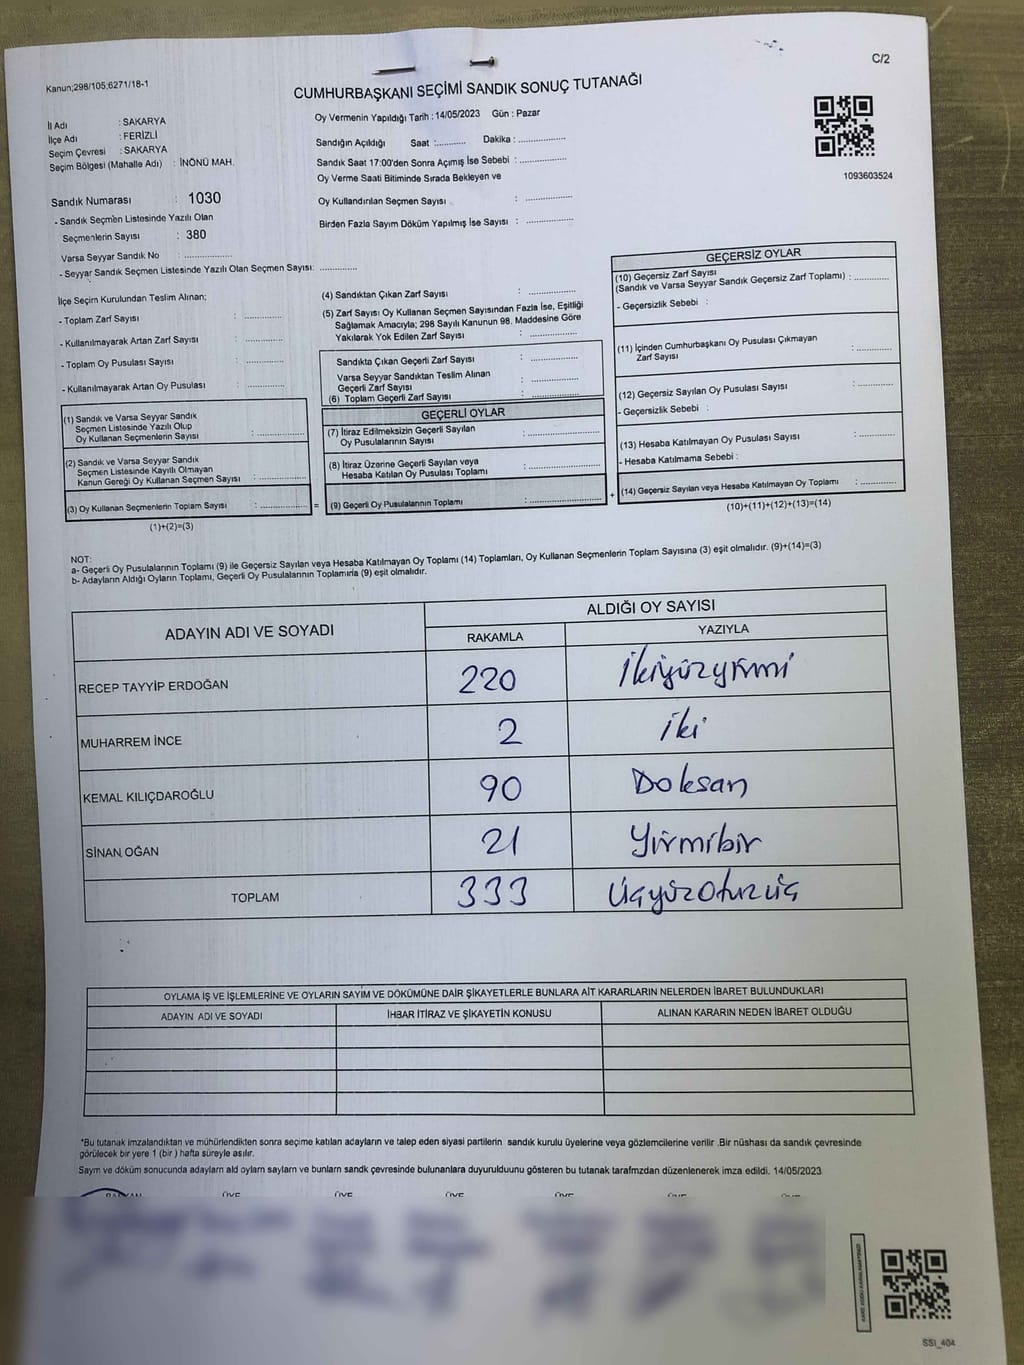 Kanun;298/105;6271/18-1
C/2
CUMHURBAŞKANI SEÇİMİ SANDIK SONUÇ TUTANAĞI
İl Adı : SAKARYA
İlçe Adı : FERİZLİ
Seçim Çevresi : SAKARYA
Seçim Bölgesi (Mahalle Adı) : İNÖNÜ MAH.
Sandık Numarası : 1030
- Sandık Seçmen Listesinde Yazılı Olan
Seçmenlerin Sayısı : 380
Varsa Seyyar Sandık No : ..................
- Seyyar Sandık Seçmen Listesinde Yazılı Olan Seçmen Sayısı: .............
Oy Vermenin Yapıldığı Tarih : 14/05/2023 Gün : Pazar
Sandığın Açıldığı Saat :.......... Dakika : ................
Sandık Saat 17:00'den Sonra Açımış İse Sebebi : ................
Oy Verme Saati Bitiminde Sırada Bekleyen ve
Oy Kullandırılan Seçmen Sayısı : ................
Birden Fazla Sayım Döküm Yapılmış İse Sayısı : ................
1093603524
İlçe Seçim Kurulundan Teslim Alınan;
- Toplam Zarf Sayısı : .............
- Kullanılmayarak Artan Zarf Sayısı : .............
- Toplam Oy Pusulası Sayısı : .............
- Kullanılmayarak Artan Oy Pusulası : .............
(1) Sandık ve Varsa Seyyar Sandık
Seçmen Listesinde Yazılı Olup
Oy Kullanan Seçmenlerin Sayısı : ................
(2) Sandık ve Varsa Seyyar Sandık
Seçmen Listesinde Kayıllı Olmayan
Kanun Gereği Oy Kullanan Seçmen Sayısı : ................
(3) Oy Kullanan Seçmenlerin Toplam Sayısı : ................
(1)+(2)=(3)
(4) Sandıktan Çıkan Zarf Sayısı : ................
(5) Zarf Sayısı Oy Kullanan Seçmen Sayısından Fazla İse, Eşitliği
Sağlamak Amacıyla; 298 Sayılı Kanunun 98. Maddesine Göre
Yakılarak Yok Edilen Zarf Sayısı : ................
Sandıkta Çıkan Geçerli Zarf Sayısı : ................
Varsa Seyyar Sandıktan Teslim Alınan
Geçerli Zarf Sayısı : ................
(6) Toplam Geçerli Zarf Sayısı : ................
GEÇERLİ OYLAR
(7) İtiraz Edilmeksizin Geçerli Sayılan
Oy Pusulalarının Sayısı : ................
(8) İtiraz Üzerine Geçerli Sayılan veya
Hesaba Katılan Oy Pusulası Toplamı : ................
= (9) Geçerli Oy Pusulalarının Toplamı : ................ +
GEÇERSİZ OYLAR
(10) Geçersiz Zarf Sayısı
(Sandık ve Varsa Seyyar Sandık Geçersiz Zarf Toplamı) : .............
- Geçersizlik Sebebi :
(11) İçinden Cumhurbaşkanı Oy Pusulası Çıkmayan
Zarf Sayısı : .............
(12) Geçersiz Sayılan Oy Pusulası Sayısı : .............
- Geçersizlik Sebebi :
(13) Hesaba Katılmayan Oy Pusulası Sayısı : .............
- Hesaba Katılmama Sebebi :
(14) Geçersiz Sayılan veya Hesaba Katılmayan Oy Toplamı : .............
(10)+(11)+(12)+(13)=(14)
NOT:
a- Geçerli Oy Pusulalarının Toplamı (9) ile Geçersiz Sayılan veya Hesaba Katılmayan Oy Toplamı (14) Toplamları, Oy Kullanan Seçmenlerin Toplam Sayısına (3) eşit olmalıdır. (9)+(14)=(3)
b- Adayların Aldığı Oyların Toplamı, Geçerli Oy Pusulalarının Toplamırla (9) eşit olmalıdır.
ADAYIN ADI VE SOYADI ALDIĞI OY SAYISI
RAKAMLA YAZIYLA
RECEP TAYYİP ERDOĞAN 220 İkiyüzyirmi
MUHARREM İNCE 2 İki
KEMAL KILIÇDAROĞLU 90 Doksan
SİNAN OĞAN 21 Yirmibir
TOPLAM 333 Üçyüzotuzüç
OYLAMA İŞ VE İŞLEMLERİNE VE OYLARIN SAYIM VE DÖKÜMÜNE DAİR ŞİKAYETLERLE BUNLARA AİT KARARLARIN NELERDEN İBARET BULUNDUKLARI
ADAYIN ADI VE SOYADI İHBAR İTİRAZ VE ŞİKAYETİN KONUSU ALINAN KARARIN NEDEN İBARET OLDUĞU
*Bu tutanak imzalandıktan ve mühürlendikten sonra seçime katılan adayların ve talep eden siyasi partilerin sandık kurulu üyelerine veya gözlemcilerine verilir .Bir nüshası da sandık çevresinde
görülecek bir yere 1 (bir ) hafta süreyle asılır.
Sayım ve döküm sonucunda adayların ald oyların sayları ve bunların sandk çevresinde bulunanlara duyurulduunu gösteren bu tutanak tarafmzdan düzenlenerek imza edildi. 14/05/2023
BAŞKAN ÜYE ÜYE ÜYE ÜYE ÜYE ÜYE
SSI_404